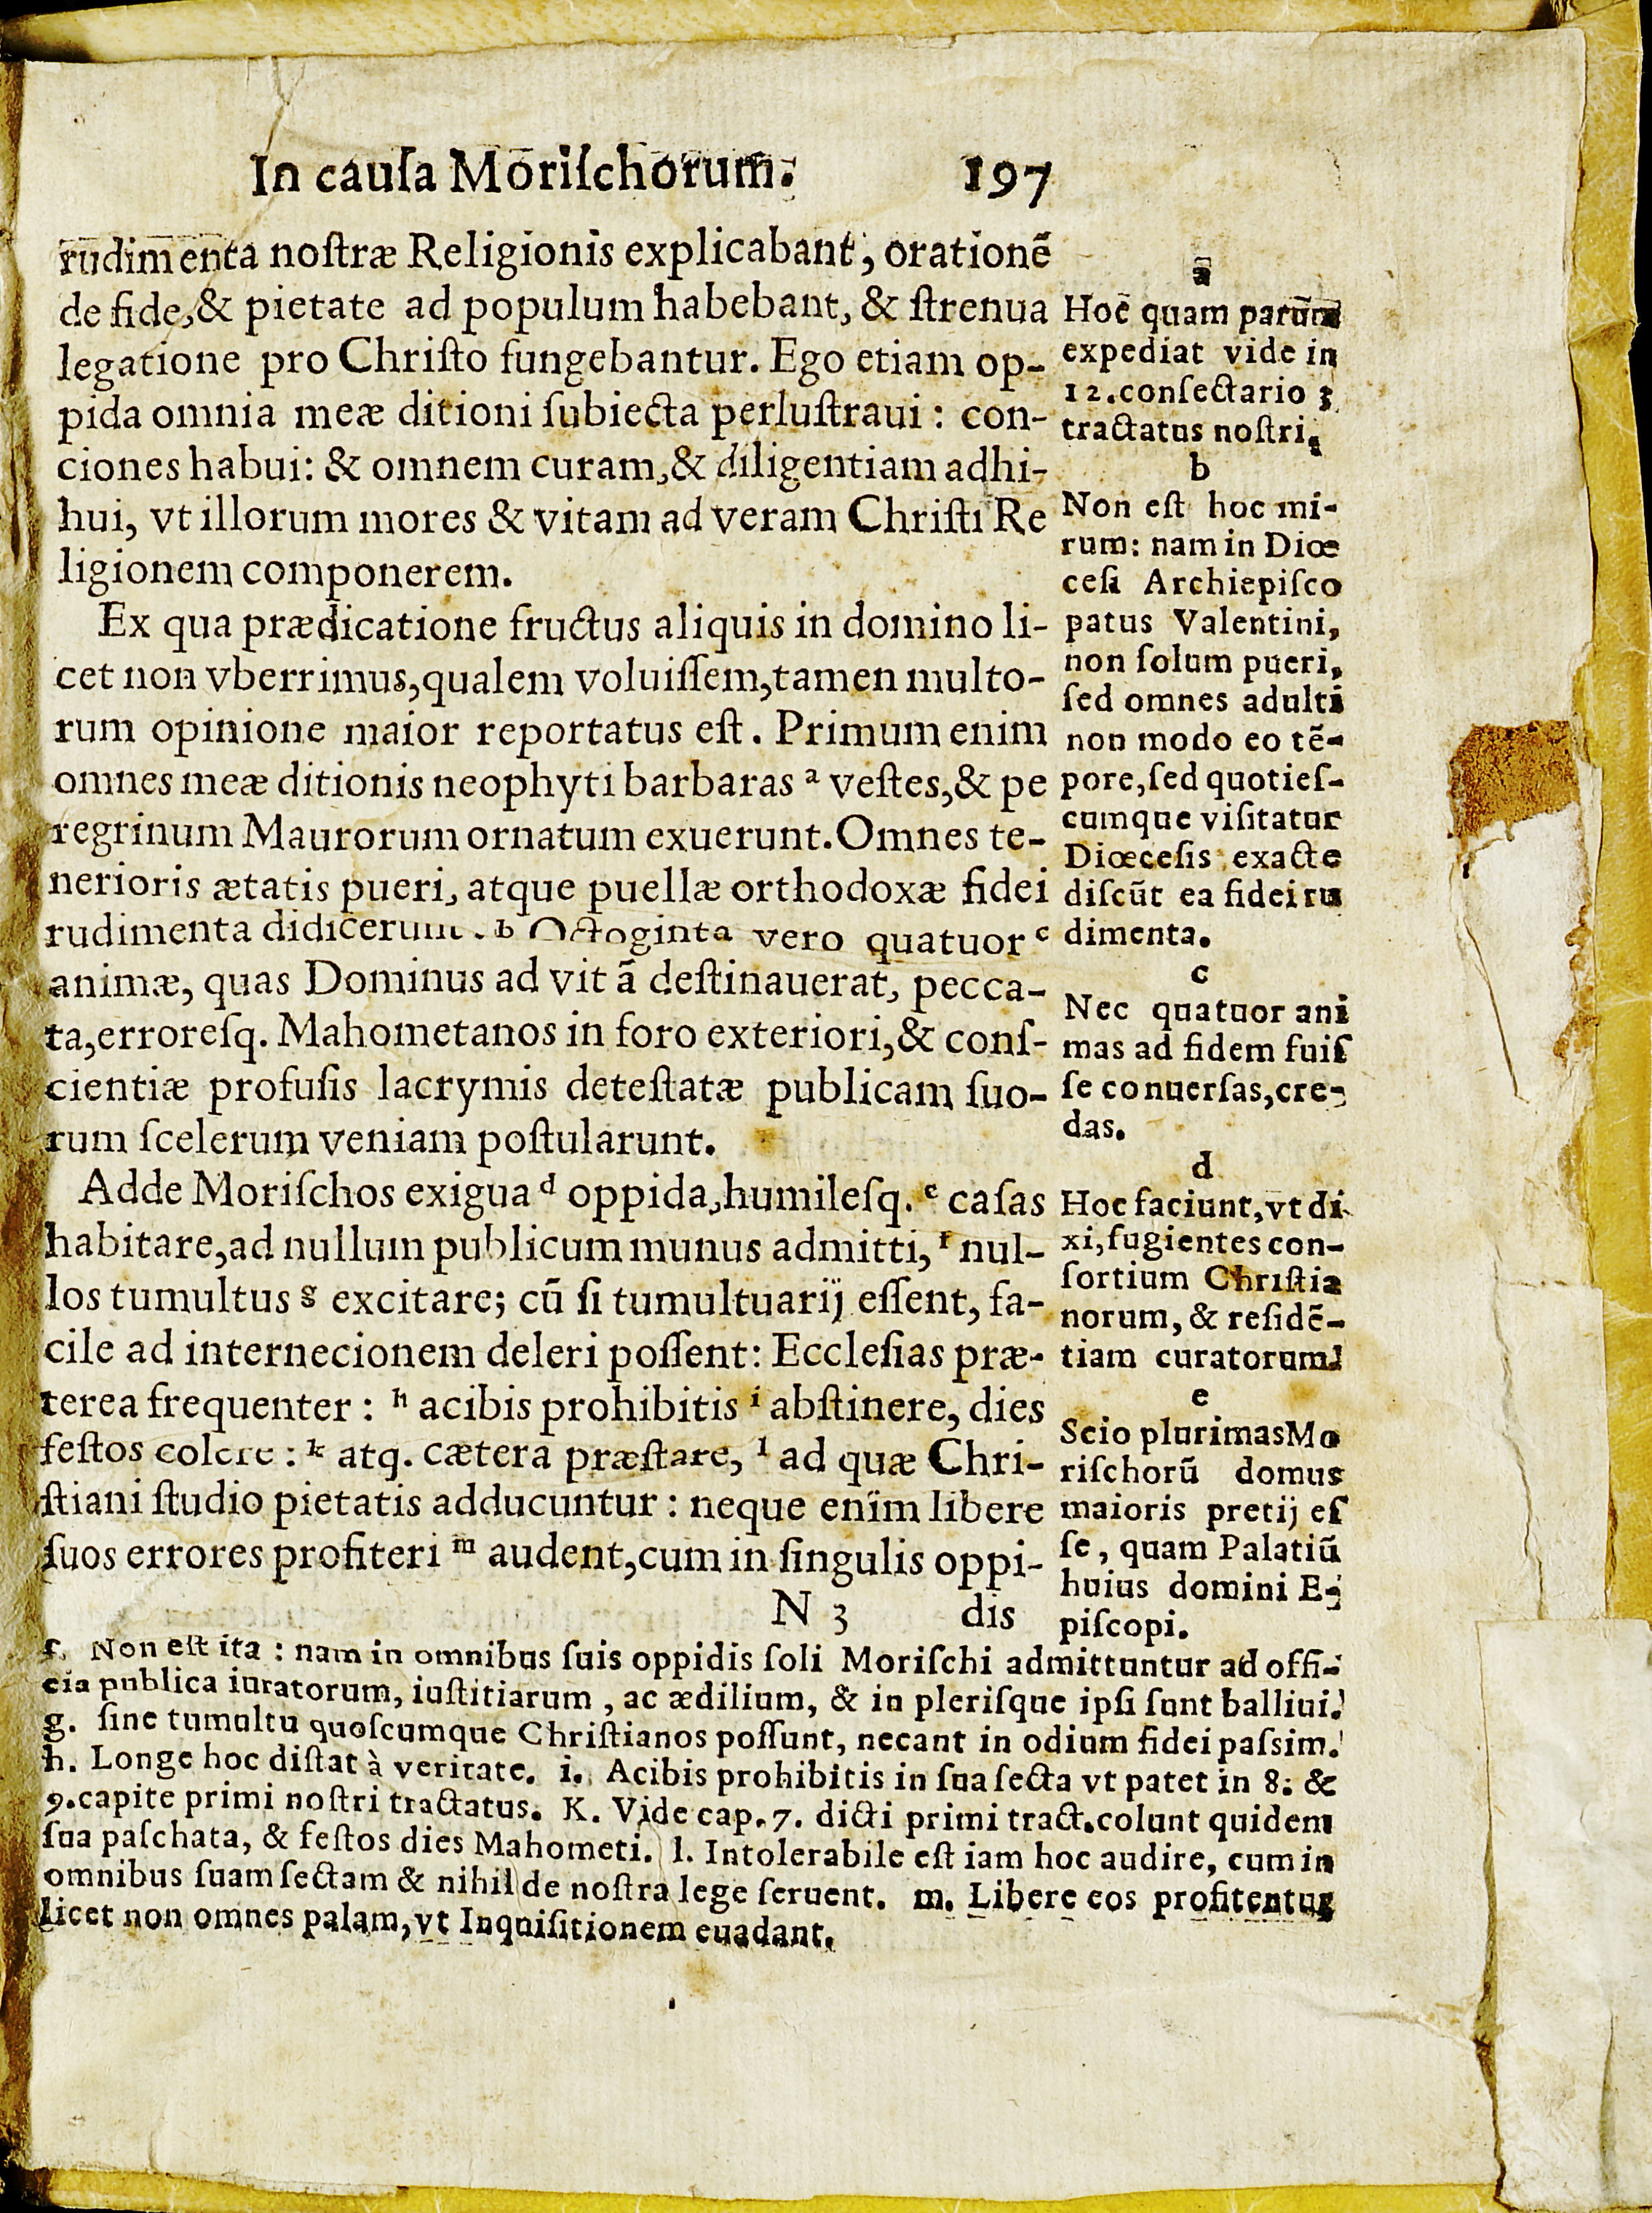 In cauſa Moriſchorum. 197
rudimenta noſtræ Religionis explicabant, orationẽ
de fide,& pietate ad populum habebant, & ſtrenua
legatione pro Chriſto fungebantur. Ego etiam op-
pida omnia meæ ditioni ſubiecta perluſtraui: con-
ciones habui: & omnem curam,& diligentiam adhi-
hui, vt illorum mores & vitam ad veram Chriſti Re
ligionem componerem.
Ex qua prædicatione fructus aliquis in domino li-
cet non vberrimus,qualem voluiſſem,tamen multo-
rum opinione maior reportatus eſt. Primum enim
omnes meæ ditionis neophyti barbaras a veſtes,& pe
regrinum Maurorum ornatum exuerunt. Omnes te-
nerioris ætatis pueri, atque puellæ orthodoxæ fidei
rudimenta didicerunt. b Octoginta vero quatuor c
animæ, quas Dominus ad vit ã deſtinauerat, pecca-
ta,erroreſq. Mahometanos in foro exteriori,& conſ-
cientiæ profuſis lacrymis deteſtatæ publicam ſuo-
rum ſcelerum veniam poſtularunt.
Adde Moriſchos exigua d oppida,humileſq. e caſas
habitare,ad nullum publicum munus admitti, f nul-
los tumultus g excitare; cũ ſi tumultuarij eſſent, fa-
cile ad internecionem deleri poſſent: Eccleſias præ-
terea frequenter: h acibis prohibitis i abſtinere, dies
feſtos colere: k atq. cætera præſtare, l ad quæ Chri-
ſtiani ſtudio pietatis adducuntur: neque enim libere
ſuos errores profiteri m audent,cum in ſingulis oppi-
N 3 dis
a
Hoc quam parum
expediat vide in
12.conſectario 3
tractatus noſtri.
b
Non eſt hoc mi-
rum: nam in Diœ
ceſi Archiepiſco
patus Valentini,
non ſolum pueri,
ſed omnes adulti
non modo eo tẽ-
pore,ſed quotieſ-
cumque viſitatur
Diœceſis exacte
diſcũt ea fidei ru
dimenta.
c
Nec quatuor ani
mas ad fidem fuiſ
ſe conuerſas,cre-
das.
d
Hoc faciunt,vt di
xi,fugientes con-
ſortium Chriſtia
norum, & reſidẽ-
tiam curatorum.
e
Scio plurimas Mo
riſchorũ domus
maioris pretij eſ
ſe, quam Palatiũ
huius domini E-
piſcopi.
f. Non eſt ita: nam in omnibus ſuis oppidis ſoli Moriſchi admittuntur ad offi-
cia publica iuratorum, iuſtitiarum, ac ædilium, & in pleriſque ipſi ſunt balliui.
g. ſine tumultu quoſcumque Chriſtianos poſſunt, necant in odium fidei paſsim.
h. Longe hoc diſtat à veritate. i. Acibis prohibitis in ſua ſecta vt patet in 8. &
9.capite primi noſtri tractatus. K. Vide cap. 7. dicti primi tract.colunt quidem
ſua paſchata, & feſtos dies Mahometi. l. Intolerabile eſt iam hoc audire, cum in
omnibus ſuam ſectam & nihil de noſtra lege ſeruent. m. Libere eos profitentur
licet non omnes palam,vt Inquiſitionem euadant.